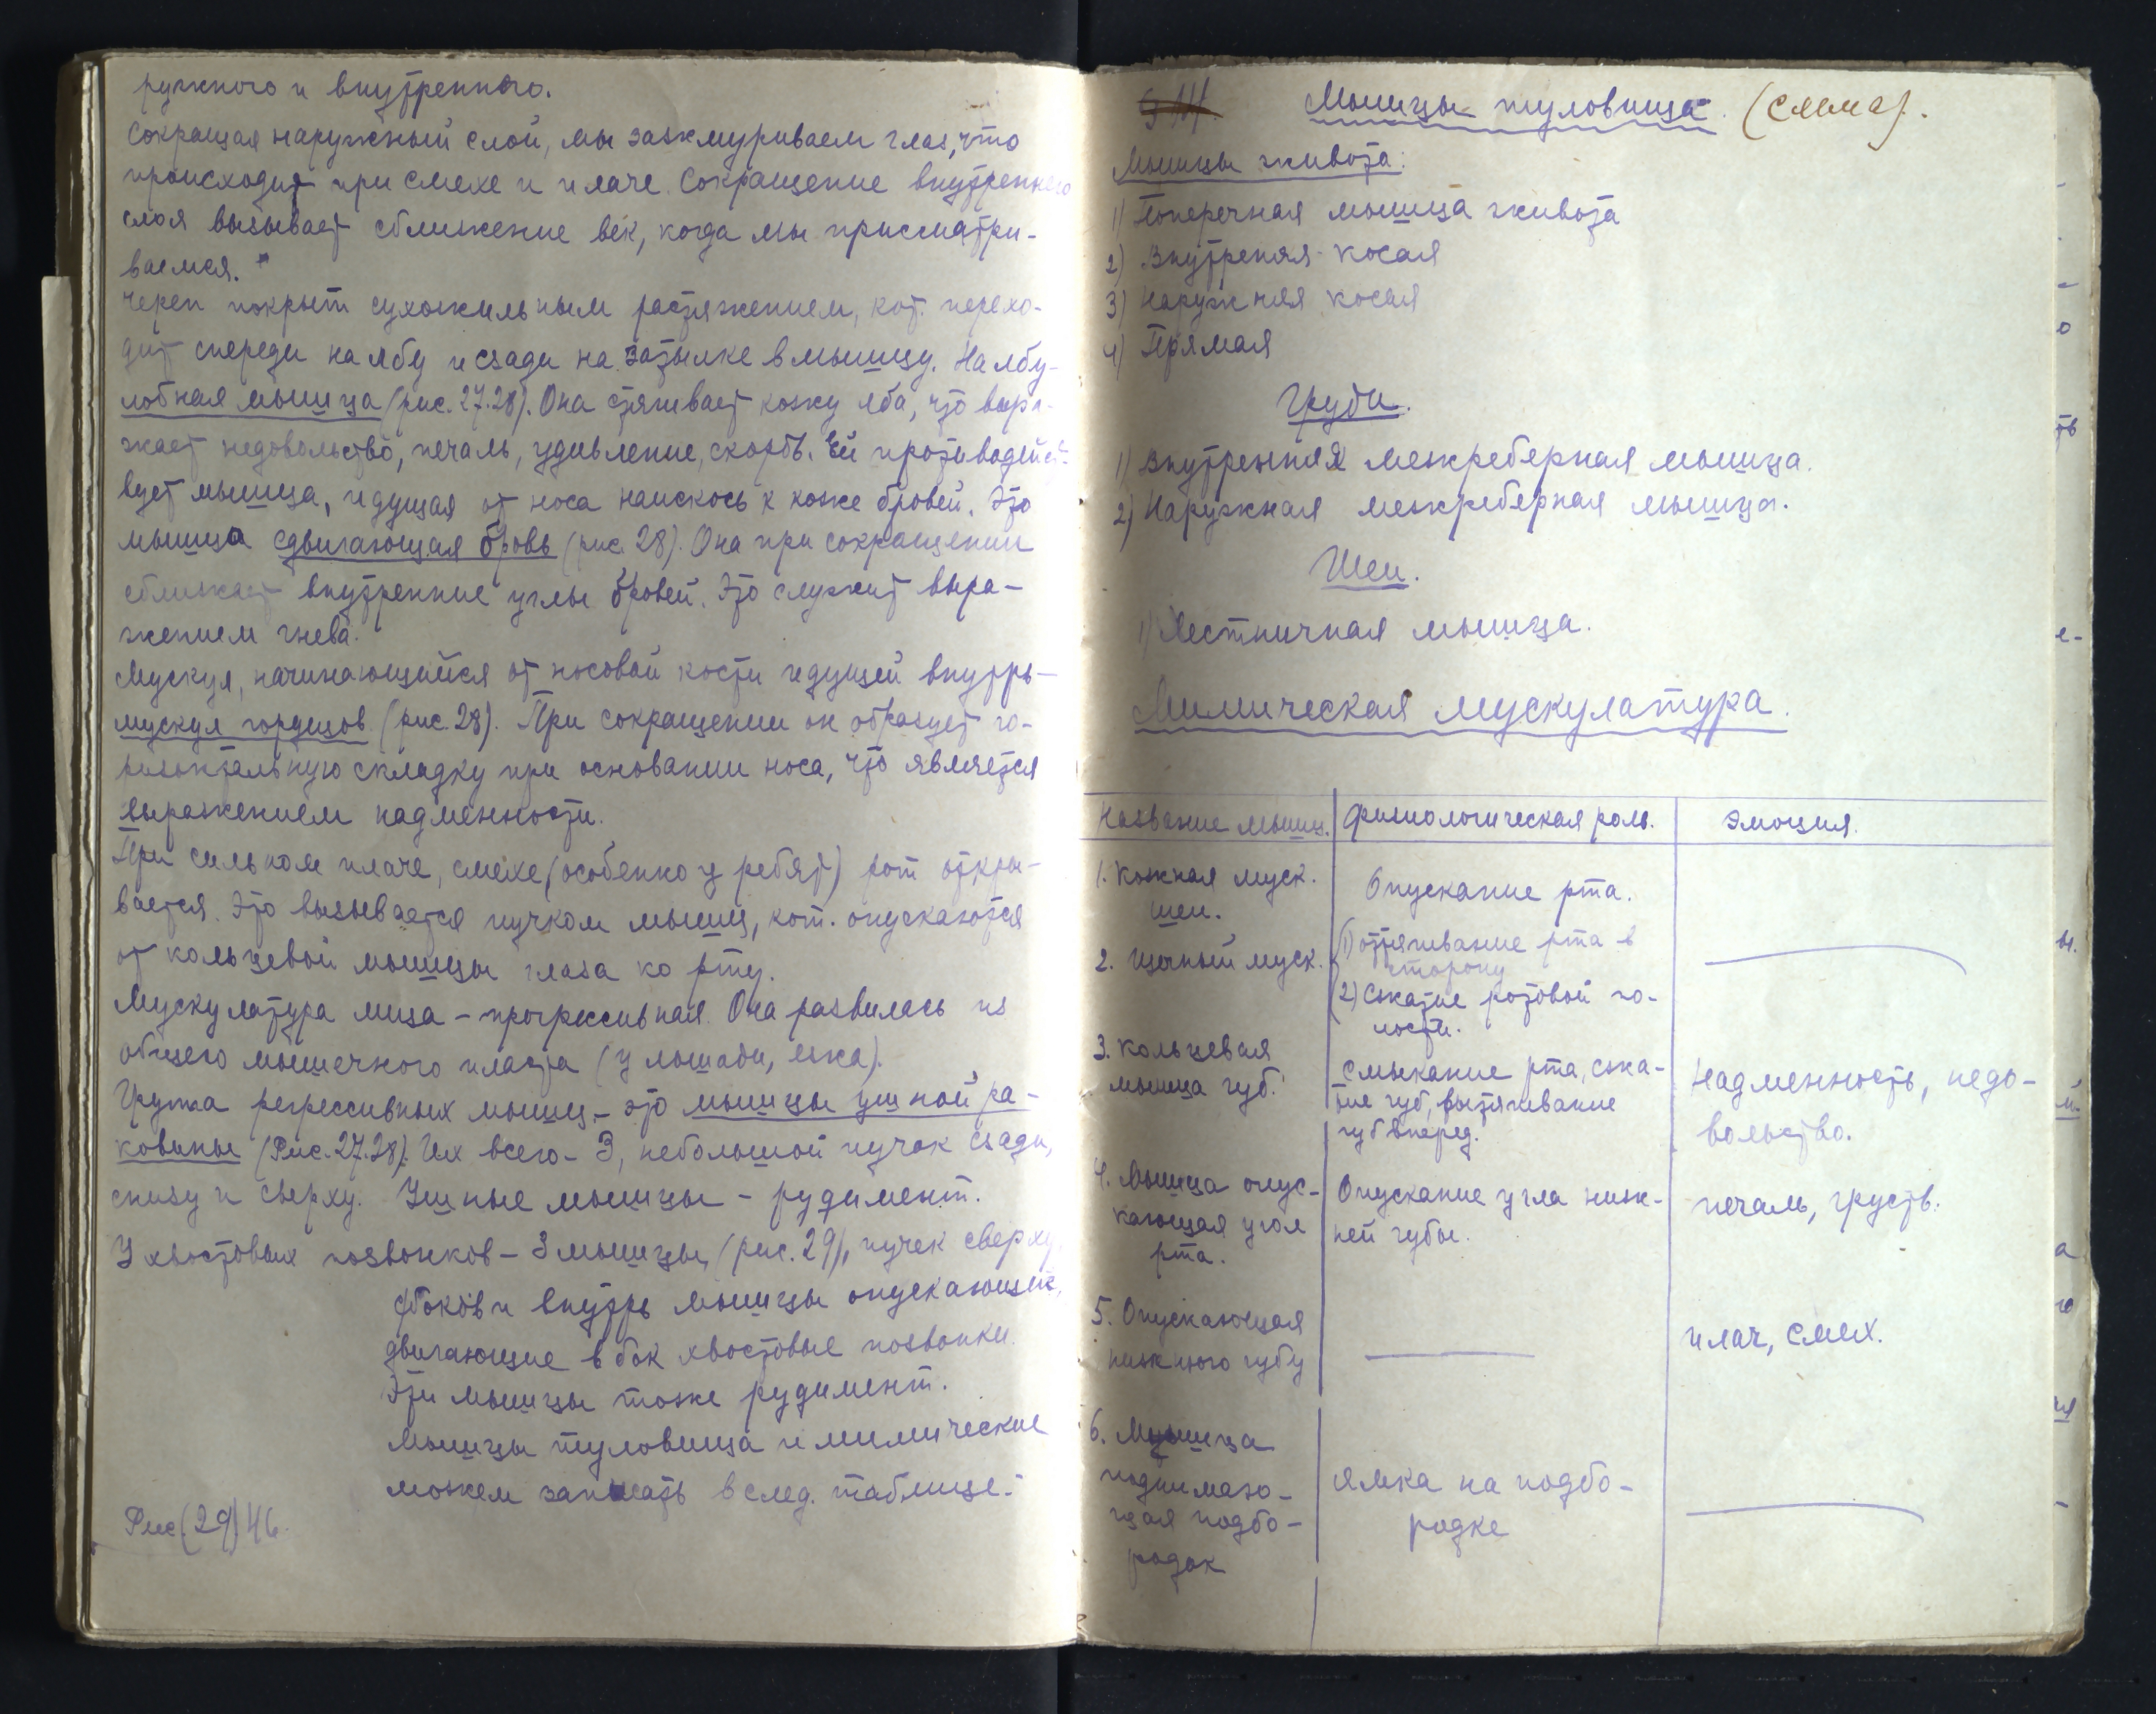 ружного и внутреннего.
Сокращая наружный слой, мы зажмуриваем глаз, что
происходит при смехе и плаче. Сокращение внутреннего
слоя вызывает сближение век, когда мы присматри-
ваемся.
Череп покрыт сухожильным растяжением, кот. перехо-
дит спереди на лбу и сзади на затылке в мышцу. На лбу-
лобная мышца (рис. 27.28). Она стягивает кожу лба, что выра-
жает недовольство, печаль, удивление, скорбь. Ей противодейст-
вует мышца, идущая от носа наискось к коже бровей. Это
мышца сдвигающая бровь (рис. 28). Она при сокращении
сближает внутренние углы бровей. Это служит выра-
жением гнева.
Мускул, начинающийся от носовой кости идущей внутрь-
мускул гордецов (рис. 28). При сокращении он образует го-
ризонтальную складку при основании носа, что является
выражением надменности.
При сильном плаче, смехе, (особенно у ребят) рот откры-
вается. Это вызывается пучком мышц, кот. опускаются
от кольцевой мышцы глаза ко рту.
Мускулатура лица - прогрессивная. Она развилась из
общего мышечного пласта (у лошади, ежа).
Группа регрессивных мышц - это мышцы ушной ра-
ковины (Рис. 27.28). Их всего - 3, небольшой пучок сзади,
снизу и сверху. Ушные мышцы - рудимент.
У хвостовых позвонков - 3 мышцы, (рис. 29), пучек сверху,
с боков и внутрь мышцы опускающие,
двигающие в бок хвостовые позвонки.
Эти мышцы тоже рудимент.
Мышцы туловища и мимические
можем записать в след. таблице:
Рис (29) 46
Мышцы туловища. (схема).
Мышцы живота:
1) Поперечная мышца живота
2) Внутреняя косая
3) Наружняя косая
4) Прямая
Груди.
1) Внутренняя межреберная мышца.
2) Наружная межреберная мышца.
Шеи.
1) Лестничная мышца.
Мимическая мускулатура.
Название мышц. Физиологическая роль. Эмоция.
1. Кожная муск. шеи.
Опускание рта.
2. Щечный муск.
1) оттягивание рта в
сторону
2) Сжатие ротовой по-
лости.
3. Кольцевая
мышца губ.
Смыкание рта, сжа-
тие губ, вытягивание
губ вперед.
Надменность, недо-
вольство.
4. Мышца опус-
кающая угол
рта.
Опускание угла ниж-
ней губы.
печаль, грусть.
5. Опускающая
нижнюю губу
плач, смех.
6. Мышца
поднимаю-
щая подбо-
родок
Ямка на подбо-
родке